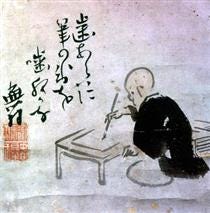 歯あらハに
筆の氷を
噛ム夜
蕪村